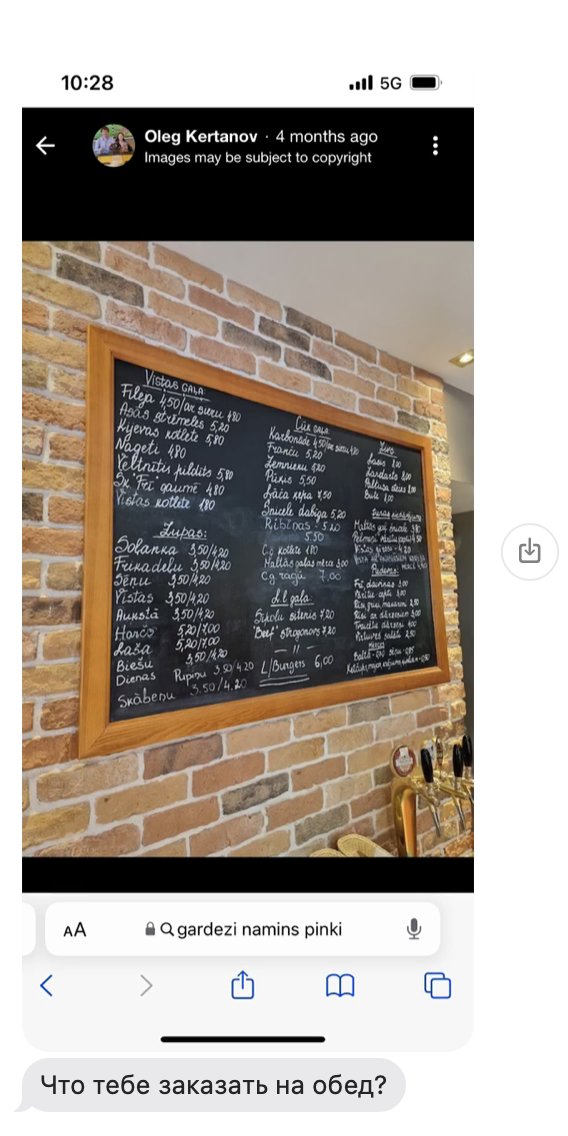 10:28
5G
Oleg Kertanov · 4 months ago
Images may be subject to copyright
Vistas GAĻA:
Fileja 4,50/ar sieru 4,80
Asās strēmeles 5,20
Kijevas kotlete 5,80
Nageti 4,80
Želinītis pildīts 5,80
"Fri" gaumē 4,80
Vistas kotlete 4,80
Zupas:
Soļanka 3,50/4,20
Frikadeļu 3,50/4,20
Sēņu 3,50/4,20
Vistas 3,50/4,20
Aukstā 3,50/4,20
Harčo 5,20/7,00
Laša 5,20/7,00
Biešu 3,50/4,20
Dienas Pupiņu 3,50/4,20
Skābeņu 3.50/4.20
Cūk gaļa
Karbonāde 4,50/ar sieru 4,80
Franču 5,20
Zemnieku 5,20
Pikis 5,50
Lāča ķepa 7,50
Šnicele dabīga 5,20
Ribiņas 5.20
5.50
Cg kotlete 4,80
Maltās gaļas mērce 3,00
Cg ragū 7,00
L.l. gaļa
"Beef" stroganovs 7,20
L/Burgers 6,00
Zivs
Lasis
Zandarts
Bute
Piedevas
Fri, daiviņas 2,00
Rīsi, griķi, makaroni 2,50
Rīsi ar dārzeņiem 3,00
Mērces
AA
gardezi namins pinki
Что тебе заказать на обед?